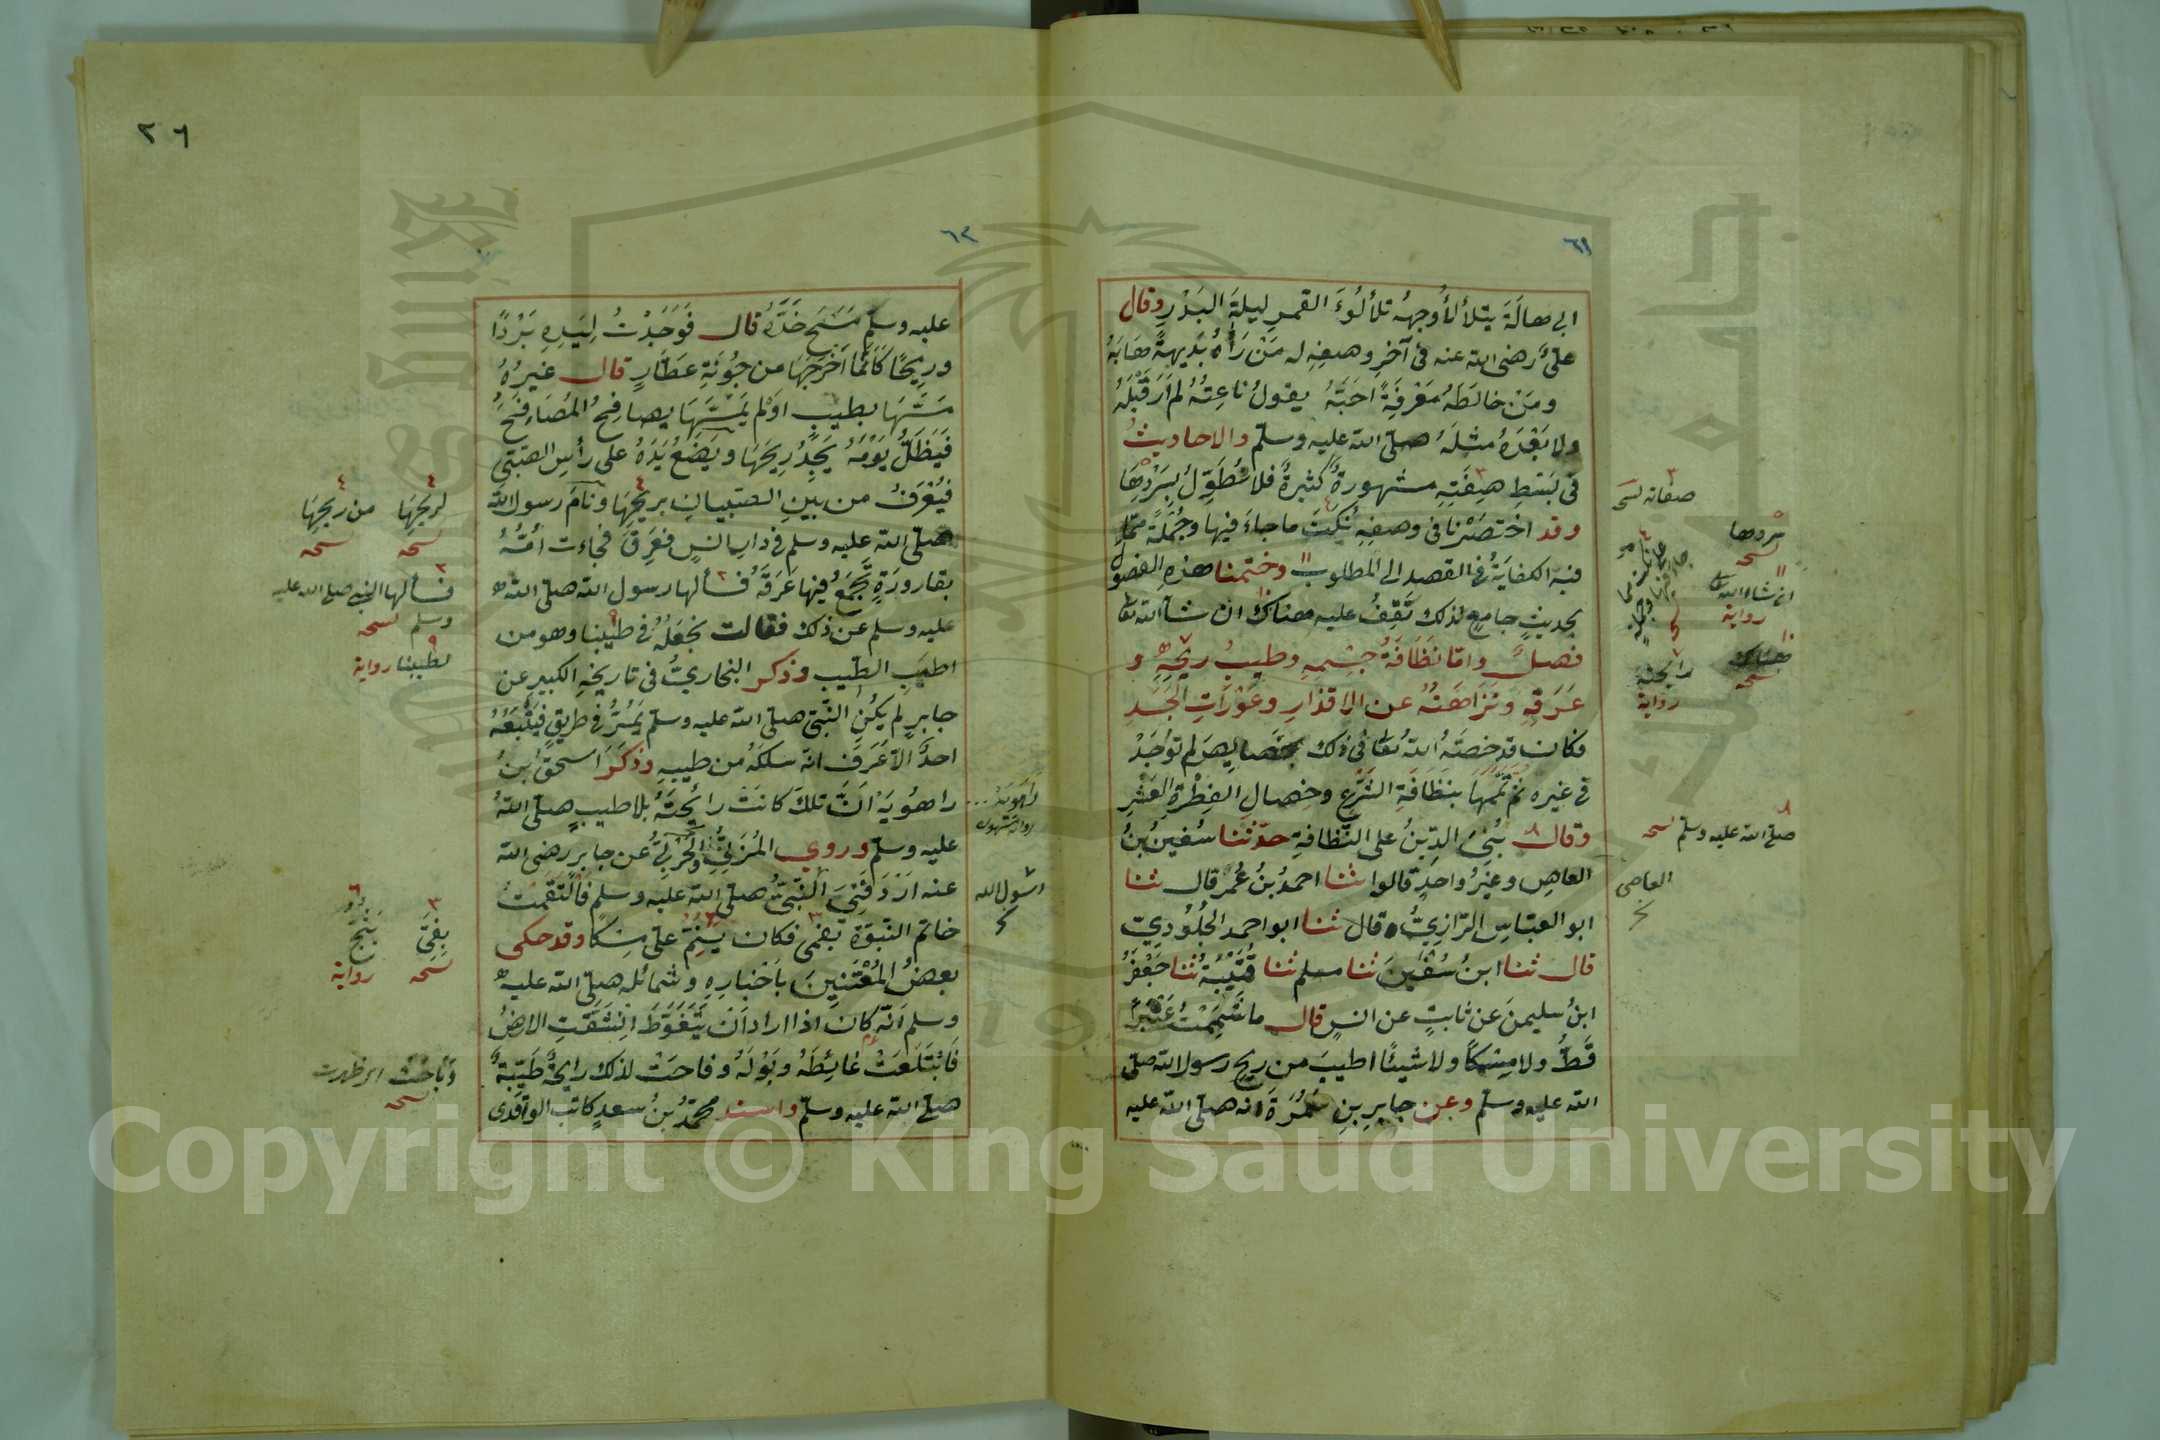 ٢٦
٦١
ابي هالَةَ يتلألأُ وجهُه تلألُؤَ القمرِ ليلةَ البَدْرِ وقال
عليٌّ رضى الله عنه في آخرِ وصفِهِ له مَنْ رَآهُ بَديهةً هَابَهُ
ومَنْ خالَطَهُ مَعْرِفَةً احَبَّهُ يقولُ ناعِتُهُ لم أرَ قَبْلَهُ
ولا بَعْدَهُ مثلَهُ صلى الله عليه وسلم والاحاديثُ
في بَسْطِ صِفَتِهِ مشهورةٌ كثيرةٌ فلا نُطَوِّلُ بسَرْدِهَا
وقد اختصَرْنا في وصفِهِ نُكَتَ ما جاءَ فيها وجُمْلَةً ممّا
فيه الكفايَةُ في القصد الى المطلوب وختمنا هذه الفصول
بحديثٍ جامعٍ لذلك تَقِفُ عليه هناك ان شآء الله تعا
فصلٌ وامّا نَظَافَةُ جِسْمِهِ وطيبُ ريحِهِ و
عَرَقِهِ ونَزَاهَتُهُ عن الاقذارِ وعَوْرَاتِ الجَسَدِ
فكان قد خصّهُ اللهُ تعا في ذلك بخصايصَ لم تُوجَدْ
في غيره ثم تمَّمَها بنَظَافَةِ الشَّرْعِ وخِصالِ الفِطْرَةِ العَشْرِ
وقال بُنِىَ الدِّينُ على النَّظافَةِ حدّثنا سُفينُ بنُ
العاصِ وغيرُ واحدٍ قالوا ثنا احمدُ بنُ عُمَرَ قال ثنا
ابو العبّاسِ الرّازِيُّ قال ثنا ابو احمد الجُلُودِيّ
قال ثنا ابنُ سُفْينَ ثنا مسلم ثنا قُتَيْبَةُ ثنا جَعْفَرُ
ابنُ سليمنَ عَن ثابتٍ عن انسٍ قال ما شَمِمْتُ عَنْبَرًا
قَطُّ ولا مِسْكًا ولا شيئًا اطيبَ من ريحِ رسولِ الله صلى
الله عليه وسلم وعن جابرِ بنِ سَمُرَةَ انه صلى الله عليه
صفاته نسخه
بسردها
نسخه
ان شاء الله تعا
رواية
هناك
نسخه
رائحته
رواية
صلى الله عليه وسلم نسخه
العاصى
٦٢
عليه وسلم مَسَحَ خَدَّهُ قال فَوَجَدْتُ لِيَدِهِ بَرْدًا
ورِيحًا كَأنّما اَخْرَجَهَا من جُؤنَةِ عَطّارٍ قال غيرُهُ
مَسَّهَا بطيبٍ اوْ لم يَمَسَّهَا يصافِحُ المُصَافِحَ
فَيَظَلُّ يَوْمَهُ يَجِدُ رِيحَهَا ويَضَعُ يَدَهُ على رأسِ الصّبيّ
فيُعْرَفُ من بينِ الصّبيانِ بريحِهَا ونامَ رسولُ الله
صلى الله عليه وسلم في دارِ انسٍ فعَرِقَ فجاءت اُمُّهُ
بقارورَةٍ تَجْمَعُ فيها عَرَقَهُ فسألها رسول الله صلى الله
عليه وسلم عن ذلك فقالت نجعَلُهُ في طيبنا وهو من
اطيبِ الطّيبِ وذكر البخاريُّ في تاريخِهِ الكبيرِ عن
جابرٍ لم يكُنِ النّبيّ صلى الله عليه وسلم يَمُرُّ في طريقٍ فيَتْبَعُهُ
احدٌ الّا عَرَفَ انّه سلكَهُ من طيبِهِ وذكَرَ اسحقُ ابنُ
راهُوَيَهْ اَنَّ تلكَ كانَتْ رائحتَهُ بلا طيبٍ صلى اللهُ
عليه وسلم وروي المُزَنِيُّ والحَرْبِيُّ عن جابرٍ رضى الله
عنه ارْدَفَنِيَ النّبيُّ صلى الله عليه وسلم فالتَقَمْتُ
خاتم النبوّةِ بفمى فكان يَنُمُّ علىَّ مِسْكًا وقد حكى
بعضُ المُعْتَنِينَ بأخبارِهِ وشمائلِه صلى الله عليه
وسلم اَنّه كانَ اذا ارادَ اَن يَتَغَوَّطَ انشَقَّتِ الارضُ
فَابْتَلَعَتْ غائِطَهُ وبَوْلَهُ وفاحَتْ لذلك رايحَةٌ طَيّبَةٌ
صلى الله عليه وسلم واسند محمّدُ بنُ سعدٍ كاتبُ الواقدى
لريحِهَا
نسخه
من ريحِهَا
نسخه
فسألها النبي صلى الله عليه
وسلم نسخه
لطيبنا رواية
رسول الله
بِفِىَّ
نسخه
رواية